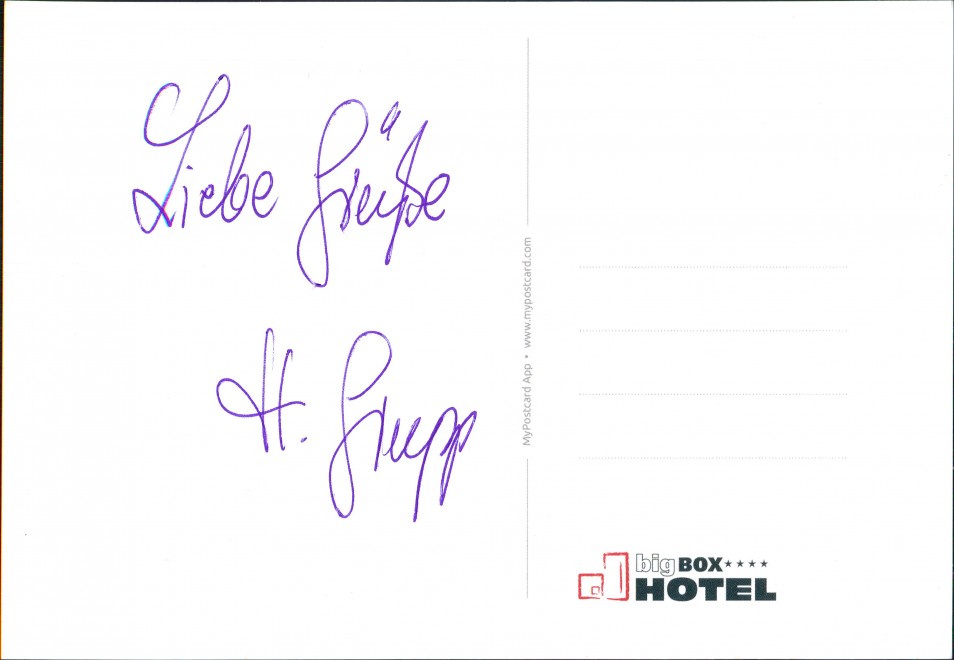 Liebe Grüße
H. Grupp
MyPostcard App • www.mypostcard.com
bigBOX★★★★
HOTEL